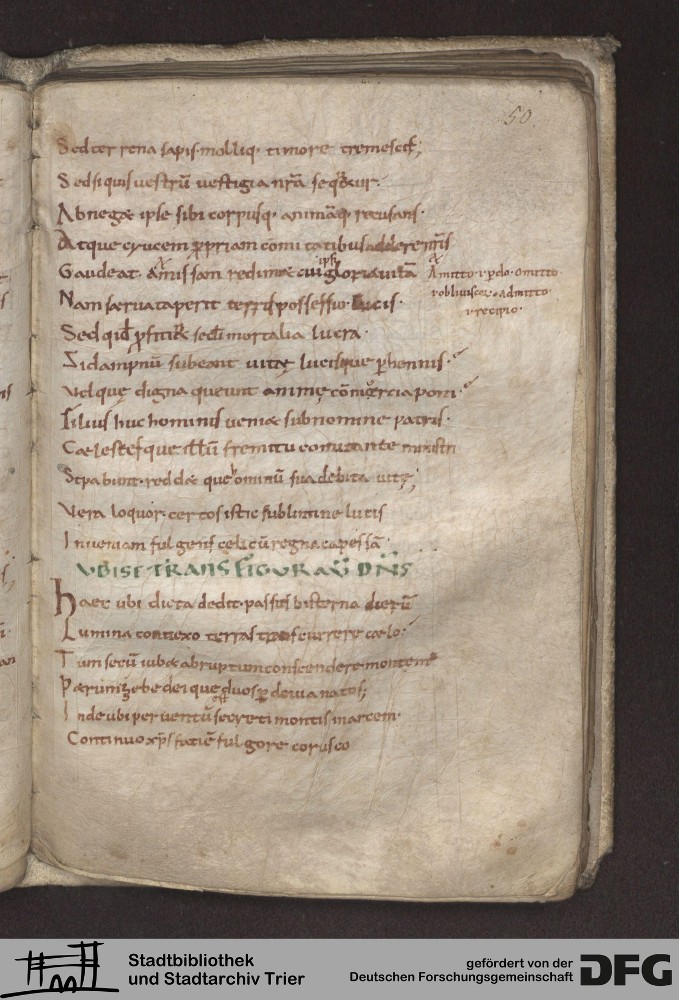 50.
Sed terrena sapis molliq· timore tremescis;
Sed si quis vestrū vestigia nr̄a seq&ur·
Abneg& ipse sibi corpusq· animāq recusans·
Atque crucem ꝓpriam comitatibus addere nr̄is
Gaudeat· amissam redim& cui gloria uitā
ipsi
Amitto·i·ꝑdo·omitto·
i·obliuiscor·admitto·
i·recipio·
Nam seruata perit terris possessio lucis·
Sed qid ꝓfiti& secū mortalia lucra·
Si dampnū subeant uitę lucisque ꝑhennis·
Vel quę digna queunt animę cōmercia poni·
Filius huc hominis ueni& sub nomine patris·
Caelestesque illū fremitu comitante ministri
Stipabunt· redd& que ominū sua debita uitę;
Vera loquor· certos istic sublimine lucis
Inueniam fulgens celi cū regna capessā·
VBI SE TRANSFIGURAṼ DN̄S
Haec ubi dicta dedit· passus bis terna dierū
Lumina conuexo terras transcurrere caelo·
Tum secū iub& abruptum conscendere montem
P&rum zebedeique duos ꝑ deuia natos;
Inde ubi peruentū secreti montis in arcem·
Continuo xp̄s faciē fulgore corusco
Stadtbibliothek
und Stadtarchiv Trier
gefördert von der
Deutschen Forschungsgemeinschaft
DFG